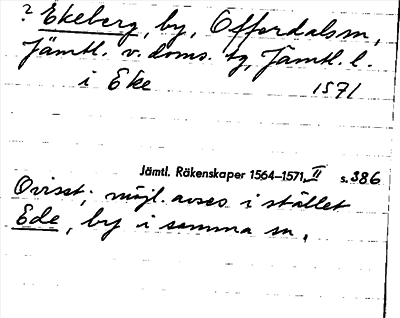 ? Ekeberg, by, Offerdals sn,
Jämtl. v. doms. tg, Jämtl. l.
i Eke 1571
Jämtl. Räkenskaper 1564–1571, II s. 386
Ovisst; möjl. avses i stället
Ede, by i samma sn.